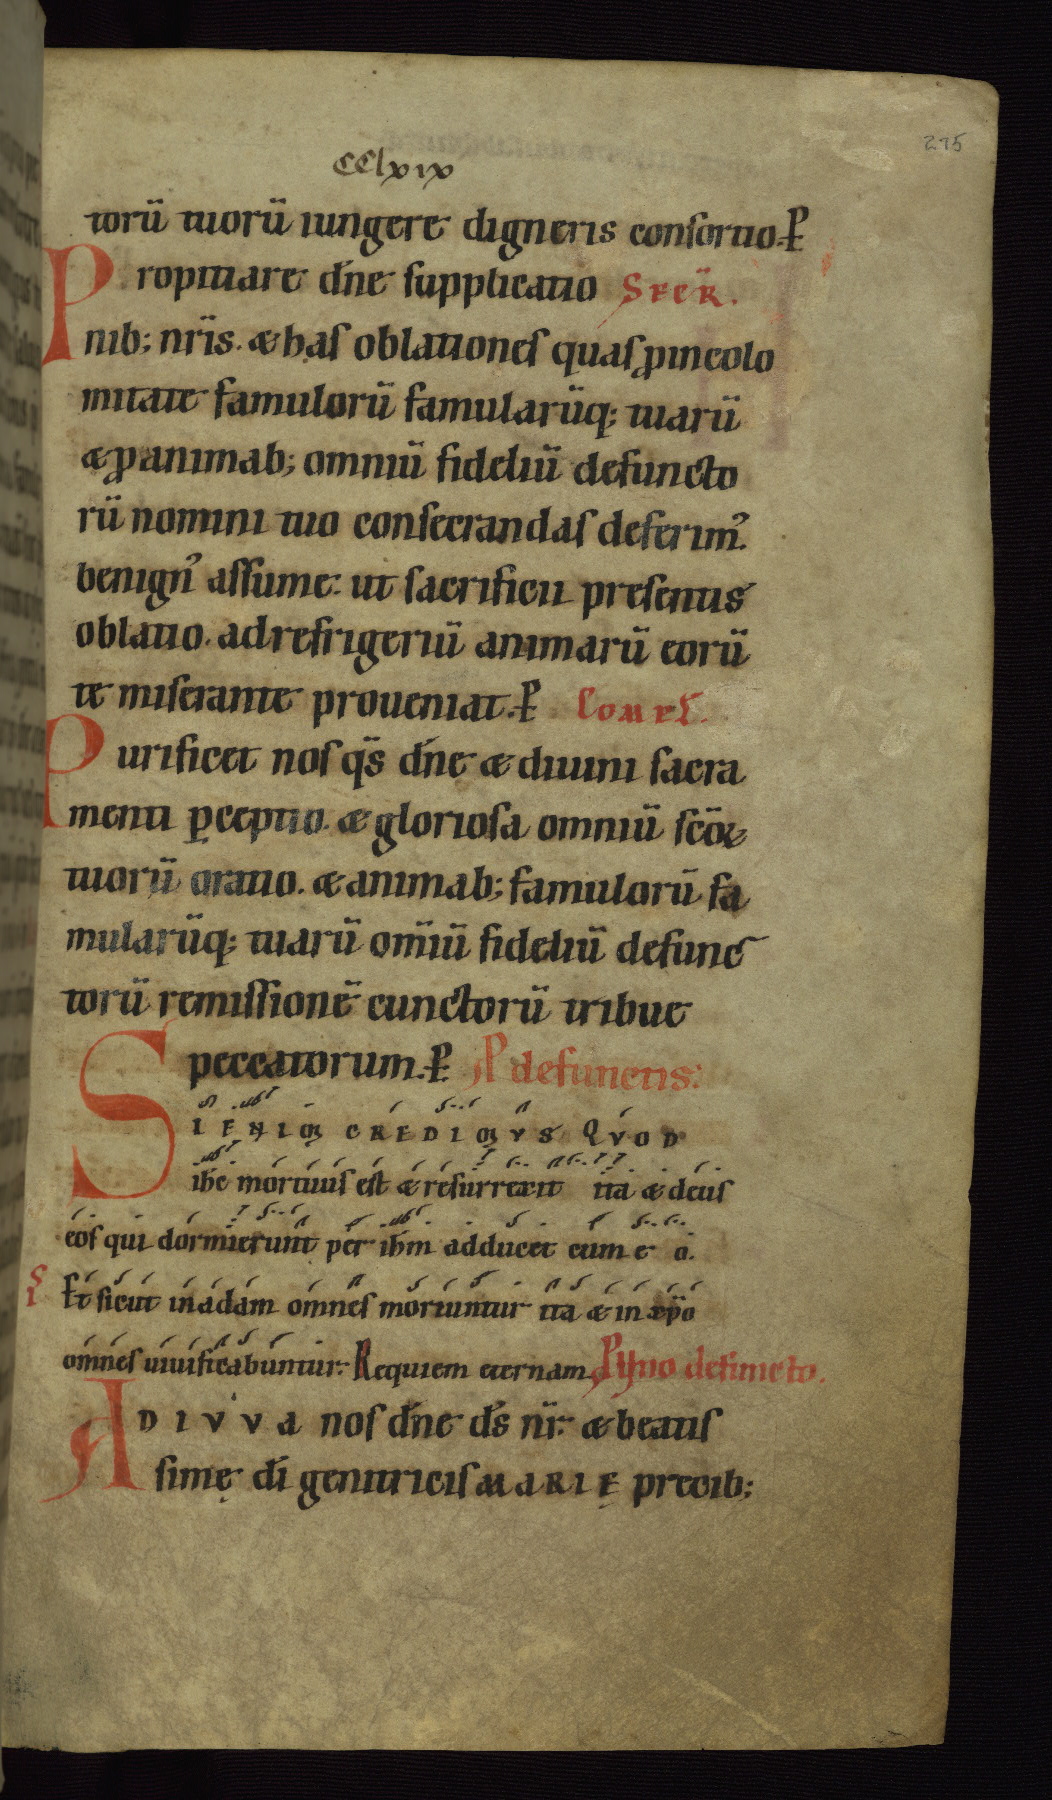 295
CClxix
torū tuorū iungere digneris consortio. P̄
Propitiare dn̄e supplicatio SECR̄.
nib; nr̄is. & has oblationes quas ꝓ incolo
mitate famulorū famularūq; tuarū
& ꝓ animab; omniū fideliū defuncto
rū nomini tuo consecrandas deferim᾽.
benign᾽ assume. ut sacrificii presentis
oblatio. ad refrigeriū animarū eorū
te miserante proueniat. P̄ COMPL̄.
Purificet nos qs̄ dn̄e & diuini sacra
menti ꝑceptio. & gloriosa omniū sc̄oꝝ
tuorū oratio. & animab; famulorū fa
mularūq; tuarū om̄iū fideliū defunc
torū remissionē cunctorū tribue
peccatorum. P̄ P defunctis.
SI ENIM CREDIMUS QUOD
ih̄c mortuus est & resurrexit ita & deus
eos qui dormierunt per ih̄m adducet cum e o.
Et sicut in adam omnes moriuntur ita & in xp̄o
omnes uiuificabuntur. Requiem eternam P uno defuncto.
ADIUUA nos dn̄e ds̄ nr̄. & beatis
simę dī genitricis MARIĘ precib;